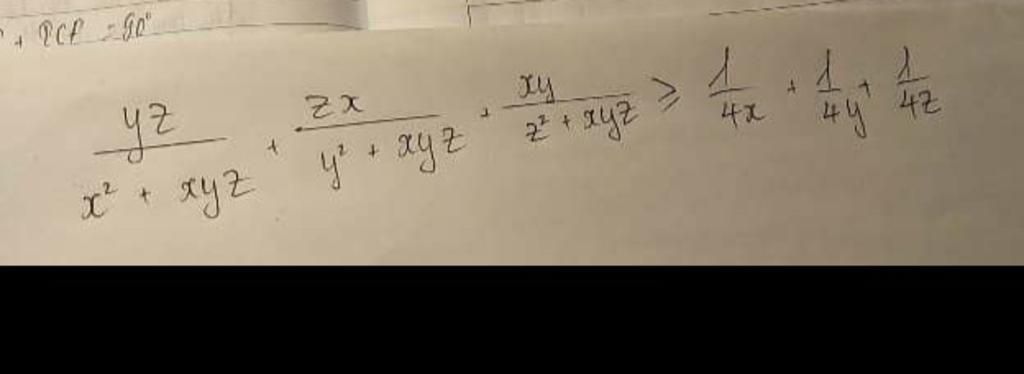 + PCP = 90°
yz / (x² + xyz) + zx / (y² + xyz) + xy / (z² + xyz) ⩾ 1/4x + 1/4y + 1/4z